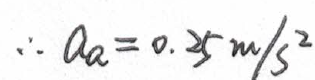 ∴ aₐ = 0.25 m/s²